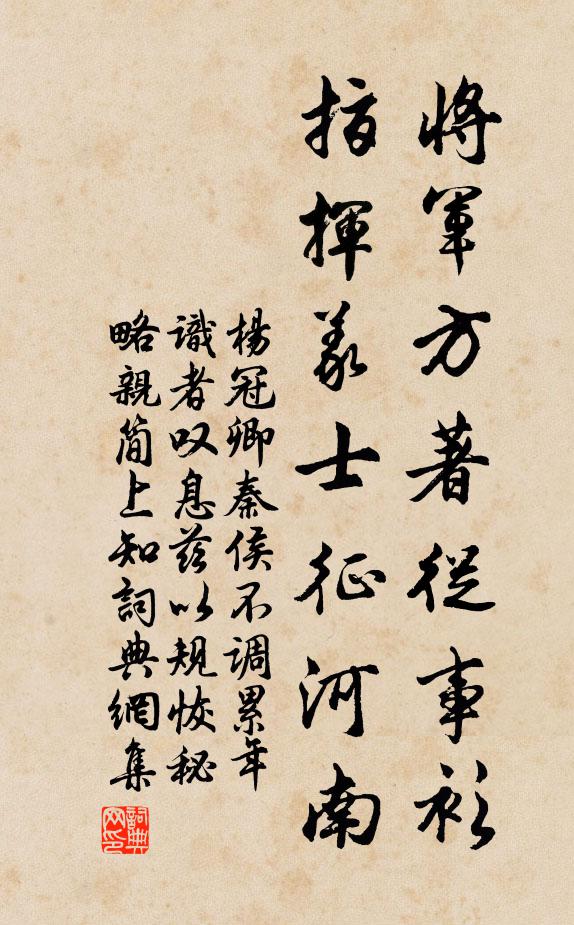 將軍方著從事衫
指揮義士征河南
楊冠卿秦侯不調累年
識者叹息兹以規恢秘
略親简上知詞典網集
詞典网印